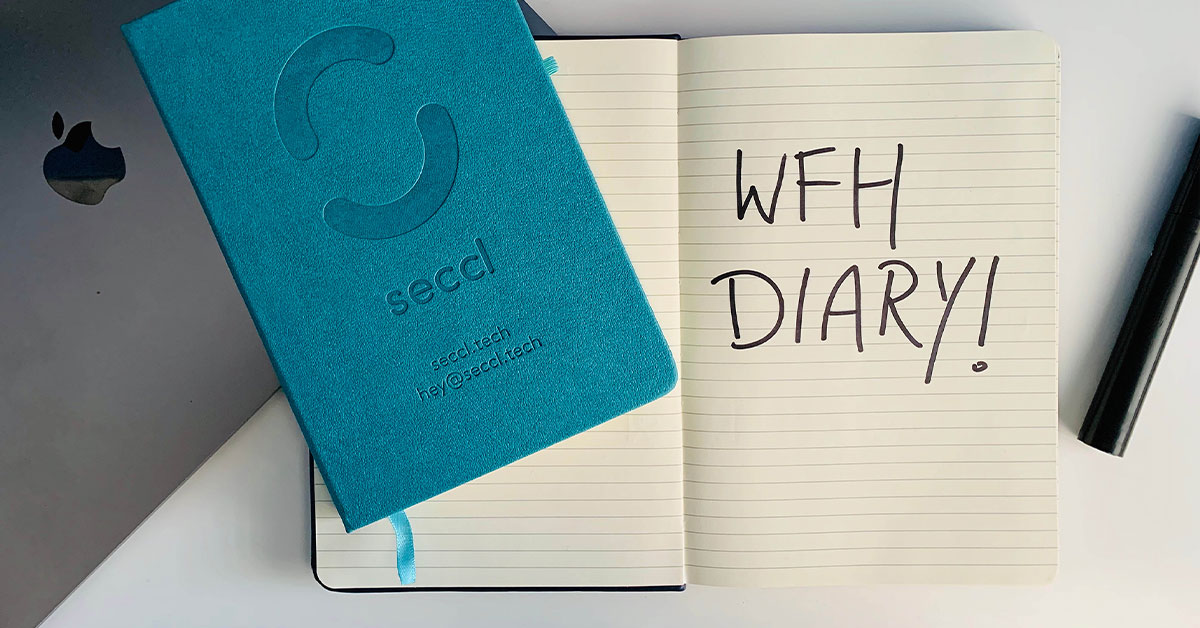 seccl
seccl.tech
hey@seccl.tech
WFH
DIARY!